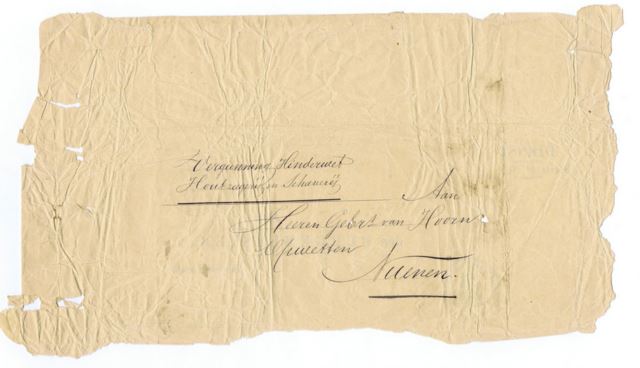 Vergunning Hinderwet
Houtzagerij en Schaverij
Aan
Heeren Gebrs van Hoorn
Opwetten
Nuenen.